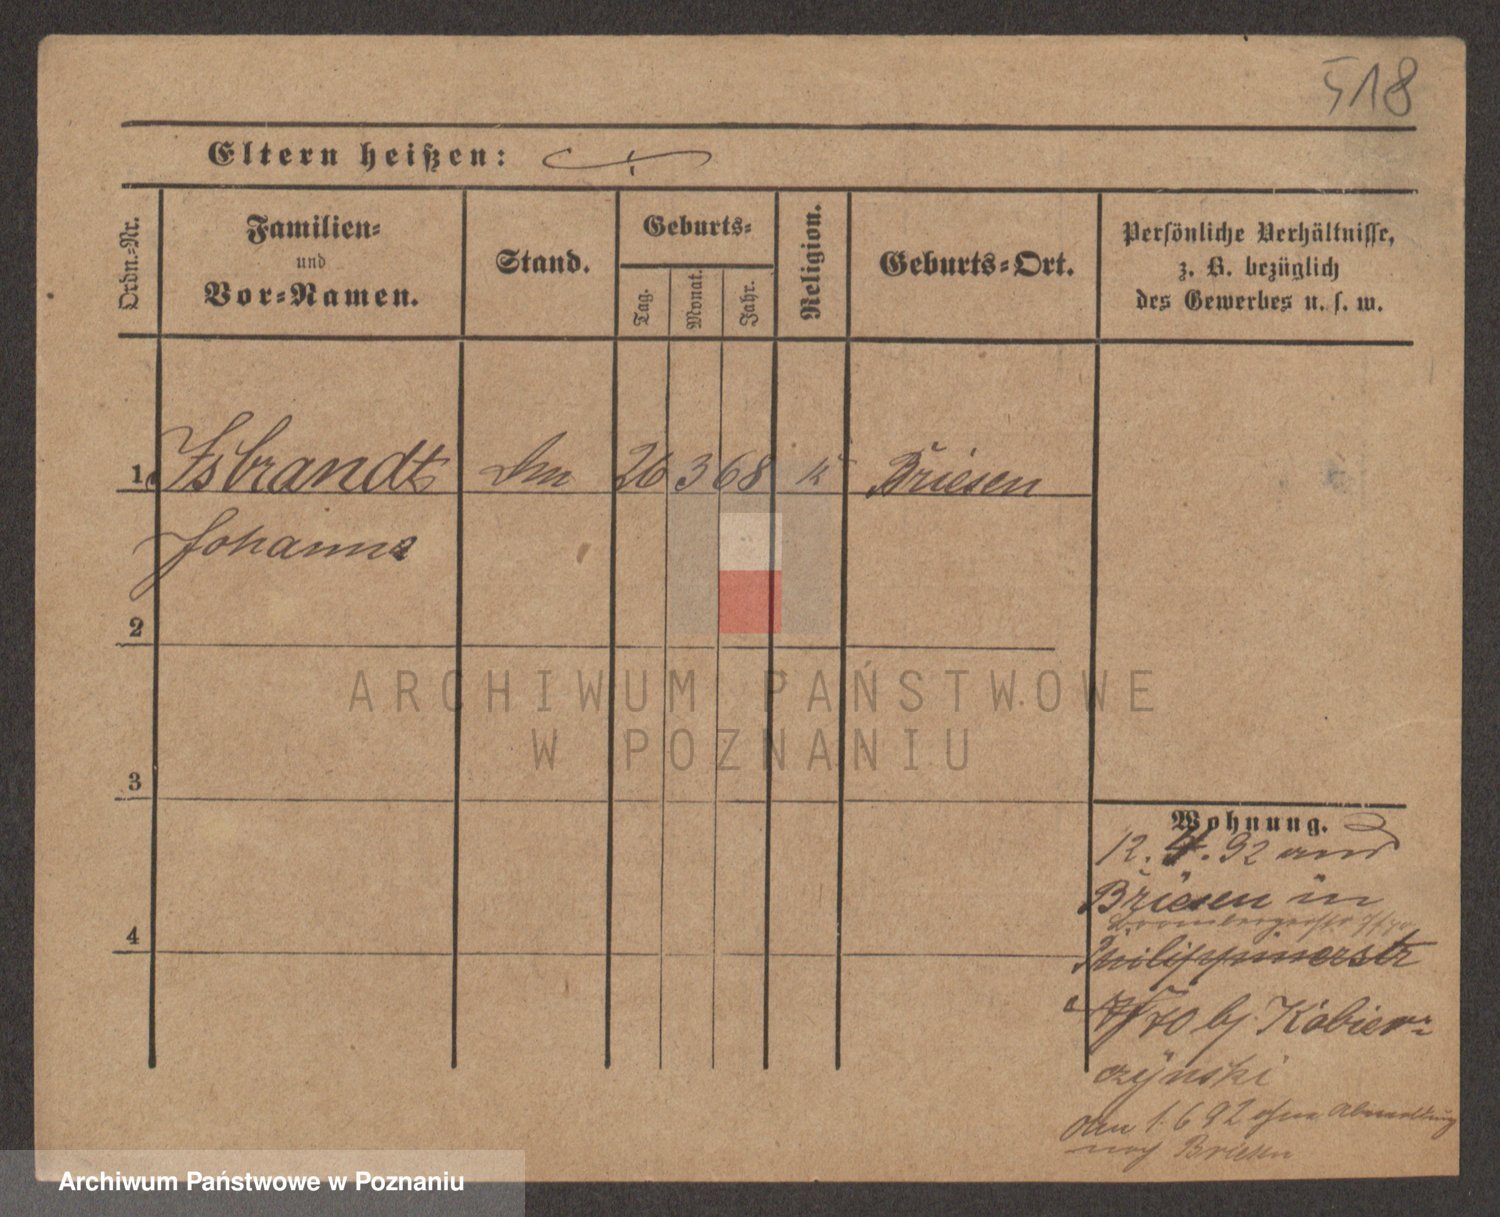 518
Eltern heißen:
Ordn.-Nr.
Familien-
und
Vor-Namen.
Stand.
Geburts-
Tag.
Monat.
Jahr.
Religion.
Geburts-Ort.
Persönliche Verhältnisse,
z. B. bezüglich
des Gewerbes u. s. w.
1 Isbrandt 26 3 68 k Briesen
Johanna
2
3
4
ARCHIWUM PAŃSTWOWE
W POZNANIU
Wohnung.
12. 4. 92 aus
Briesen in
Brombergerstr
Philippinerstr
7/70 bj. Kobier-
zynski
den 1. 6 92 ohne Abmeldung
nach Briesen
Archiwum Państwowe w Poznaniu